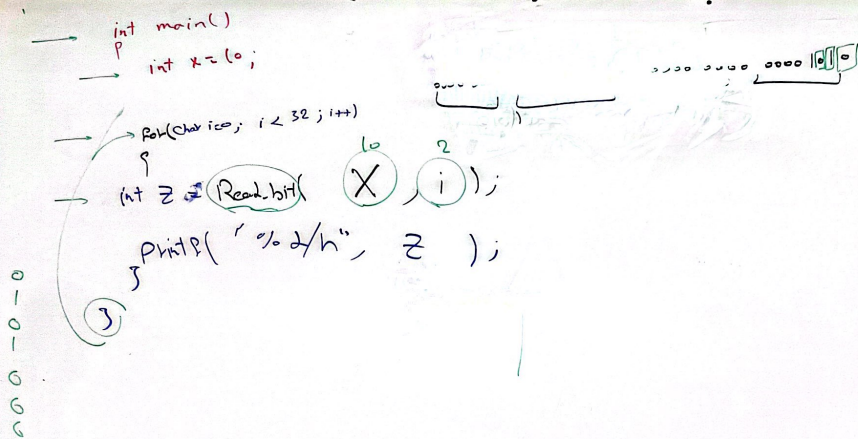 int main()
{
int x = 10;
0000 0000 0000 1010
for(char i=0; i < 32 ; i++)
{
10 2
int z = Read_bit( X , i );
printf( "%d/n", z );
}
}
0
1
0
1
0
0
0